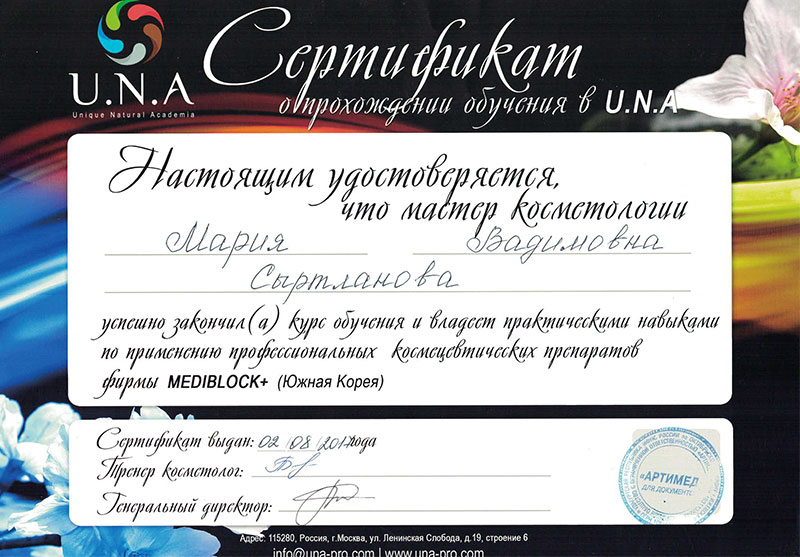 U.N.A
Unique Natural Academia
Сертификат
о прохождении обучения в U.N.A
Настоящим удостоверяется,
что мастер косметологии
Мария Вадимовна
Сыртланова
успешно закончил(а) курс обучения и владеет практическими навыками
по применению профессиональных космецевтических препаратов
фирмы MEDIBLOCK+ (Южная Корея)
Сертификат выдан: 02/08/2017года
Тренер косметолог:
Генеральный директор:
«АРТИМЕД
ДЛЯ ДОКУМЕНТОВ
Адрес: 115280, Россия, г.Москва, ул. Ленинская Слобода, д.19, строение 6
info@una-pro.com | www.una-pro.com